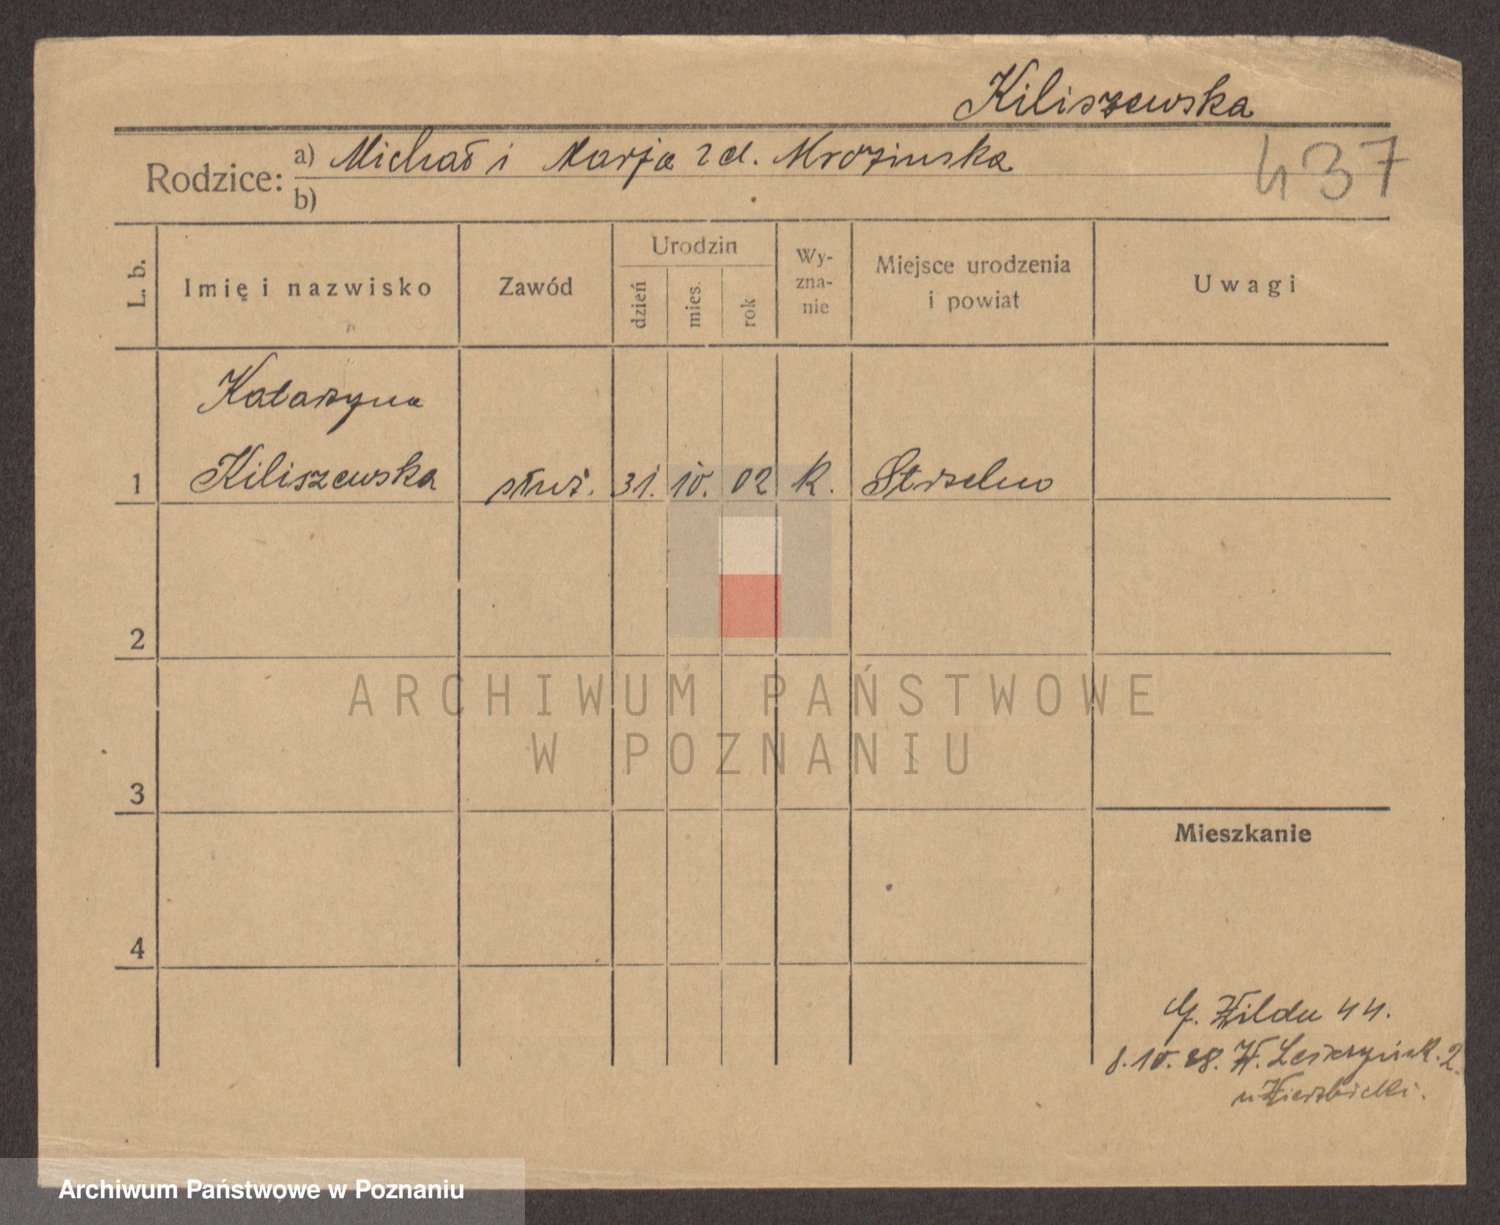 Kiliszewska
Rodzice: a) Michał i Marja zd. Mrozinska
b)
437
L. b.
Imię i nazwisko
Zawód
Urodzin
dzień
mies.
rok
Wy-
zna-
nie
Miejsce urodzenia
i powiat
Uwagi
Katarzyna
1 Kiliszewska służ. 31. 10. 02 k. Strzelno
2
ARCHIWUM PAŃSTWOWE
W POZNANIU
3
Mieszkanie
4
G. Wilda 44.
8.10.28. W. 2.
u Wierzbicki.
Archiwum Państwowe w Poznaniu